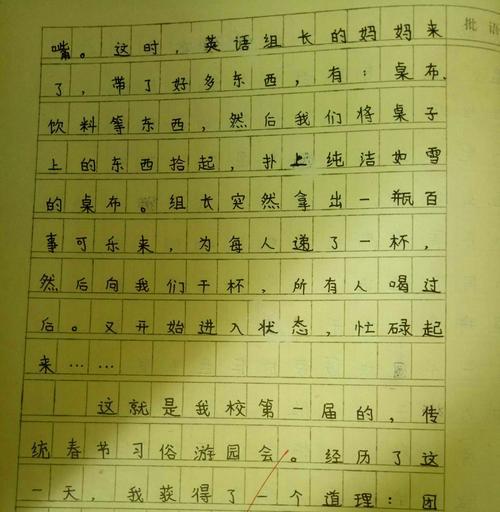 批语
嘴。这时，英语组长的妈妈来
了，带了好多东西，有：桌布、
饮料等东西，然后我们将桌子
上的东西拾起，扑上纯洁如雪
的桌布。组长突然拿出一瓶百
事可乐来，为每人递了一杯，
然后向我们干杯，所有人喝过
后。又开始进入状态，忙碌起
来……
这就是我校第一届的，传
统春节习俗游园会。经历了这
一天，我获得了一个道理：团